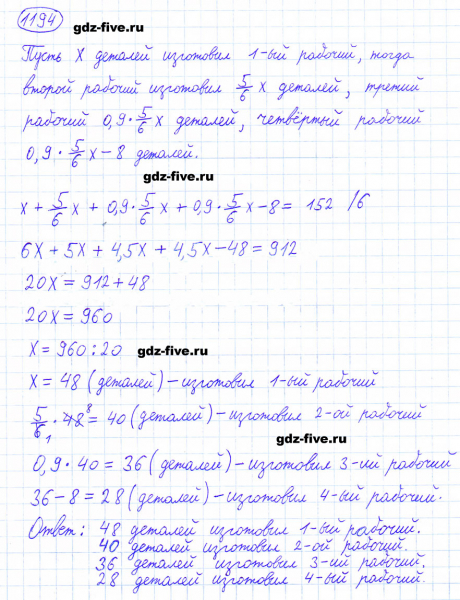 1194 gdz-five.ru
Пусть х деталей изготовил 1-ый рабочий, тогда
второй рабочий изготовил 5/6 х деталей, третий
рабочий 0,9 · 5/6 х деталей, четвёртый рабочий
0,9 · 5/6 х – 8 деталей.
gdz-five.ru
х + 5/6 х + 0,9 · 5/6 х + 0,9 · 5/6 х – 8 = 152 /6
6х + 5х + 4,5х + 4,5х – 48 = 912
20х = 912 + 48
20х = 960
х = 960 : 20 gdz-five.ru
х = 48 (деталей) – изготовил 1-ый рабочий
5/6 1 · 48 8 = 40 (деталей) – изготовил 2-ой рабочий
gdz-five.ru
0,9 · 40 = 36 (деталей) – изготовил 3-ий рабочий
36 – 8 = 28 (деталей) – изготовил 4-ый рабочий.
Ответ: 48 деталей изготовил 1-ый рабочий.
40 деталей изготовил 2-ой рабочий.
36 деталей изготовил 3-ий рабочий.
28 деталей изготовил 4-ый рабочий.